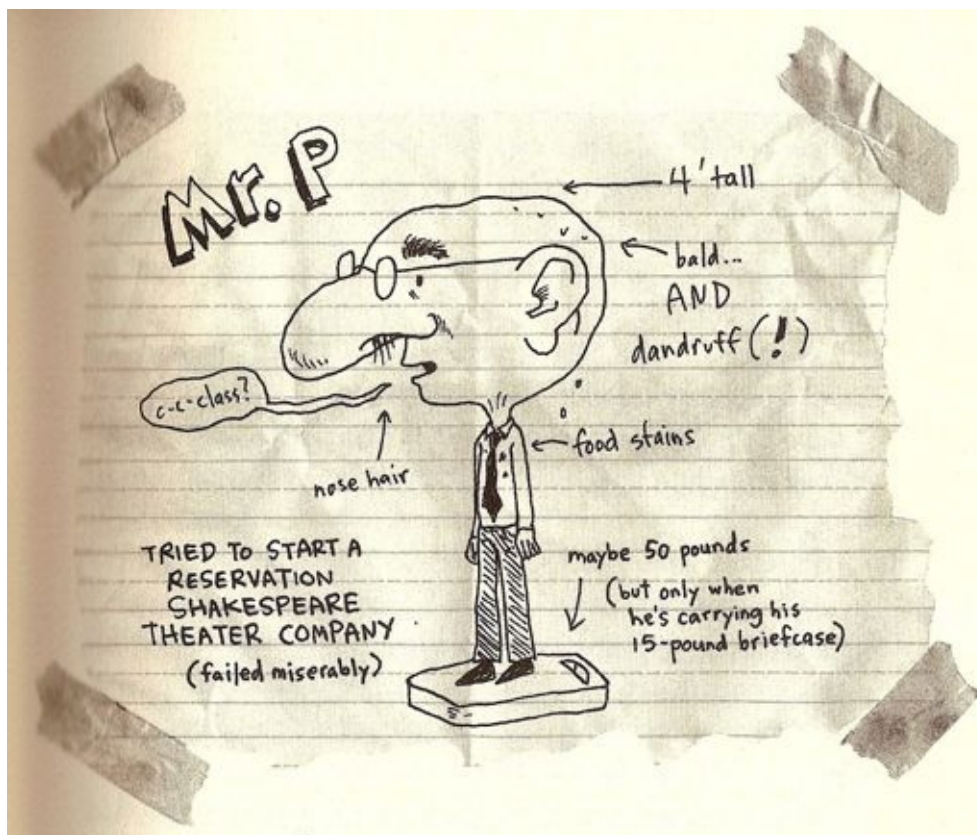 Mr. P
4' tall
bald...
AND
dandruff (!)
c-c-class?
nose hair
food stains
TRIED TO START A
RESERVATION
SHAKESPEARE
THEATER COMPANY
(failed miserably)
maybe 50 pounds
(but only when
he's carrying his
15-pound briefcase)